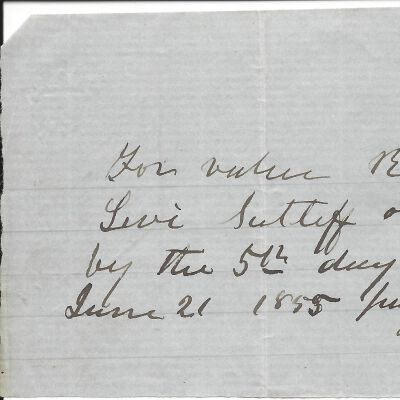 For value
Levi Sutliff
by the 5th day
June 21 1855